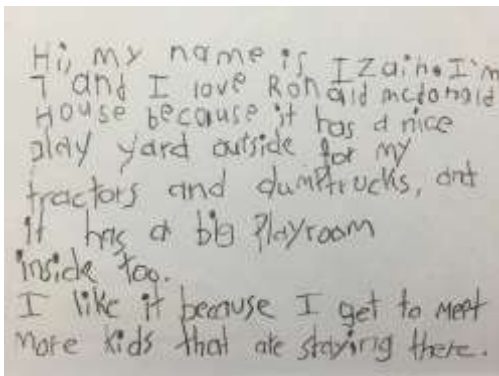 Hi, my name is Izaih. I'm
7 and I love Ronald mcdonald
House because it has a nice
play yard outside for my
tractors and dumptrucks, ant
it has a big Playroom
inside too.
I like it because I get to meet
more kids that are staying there.